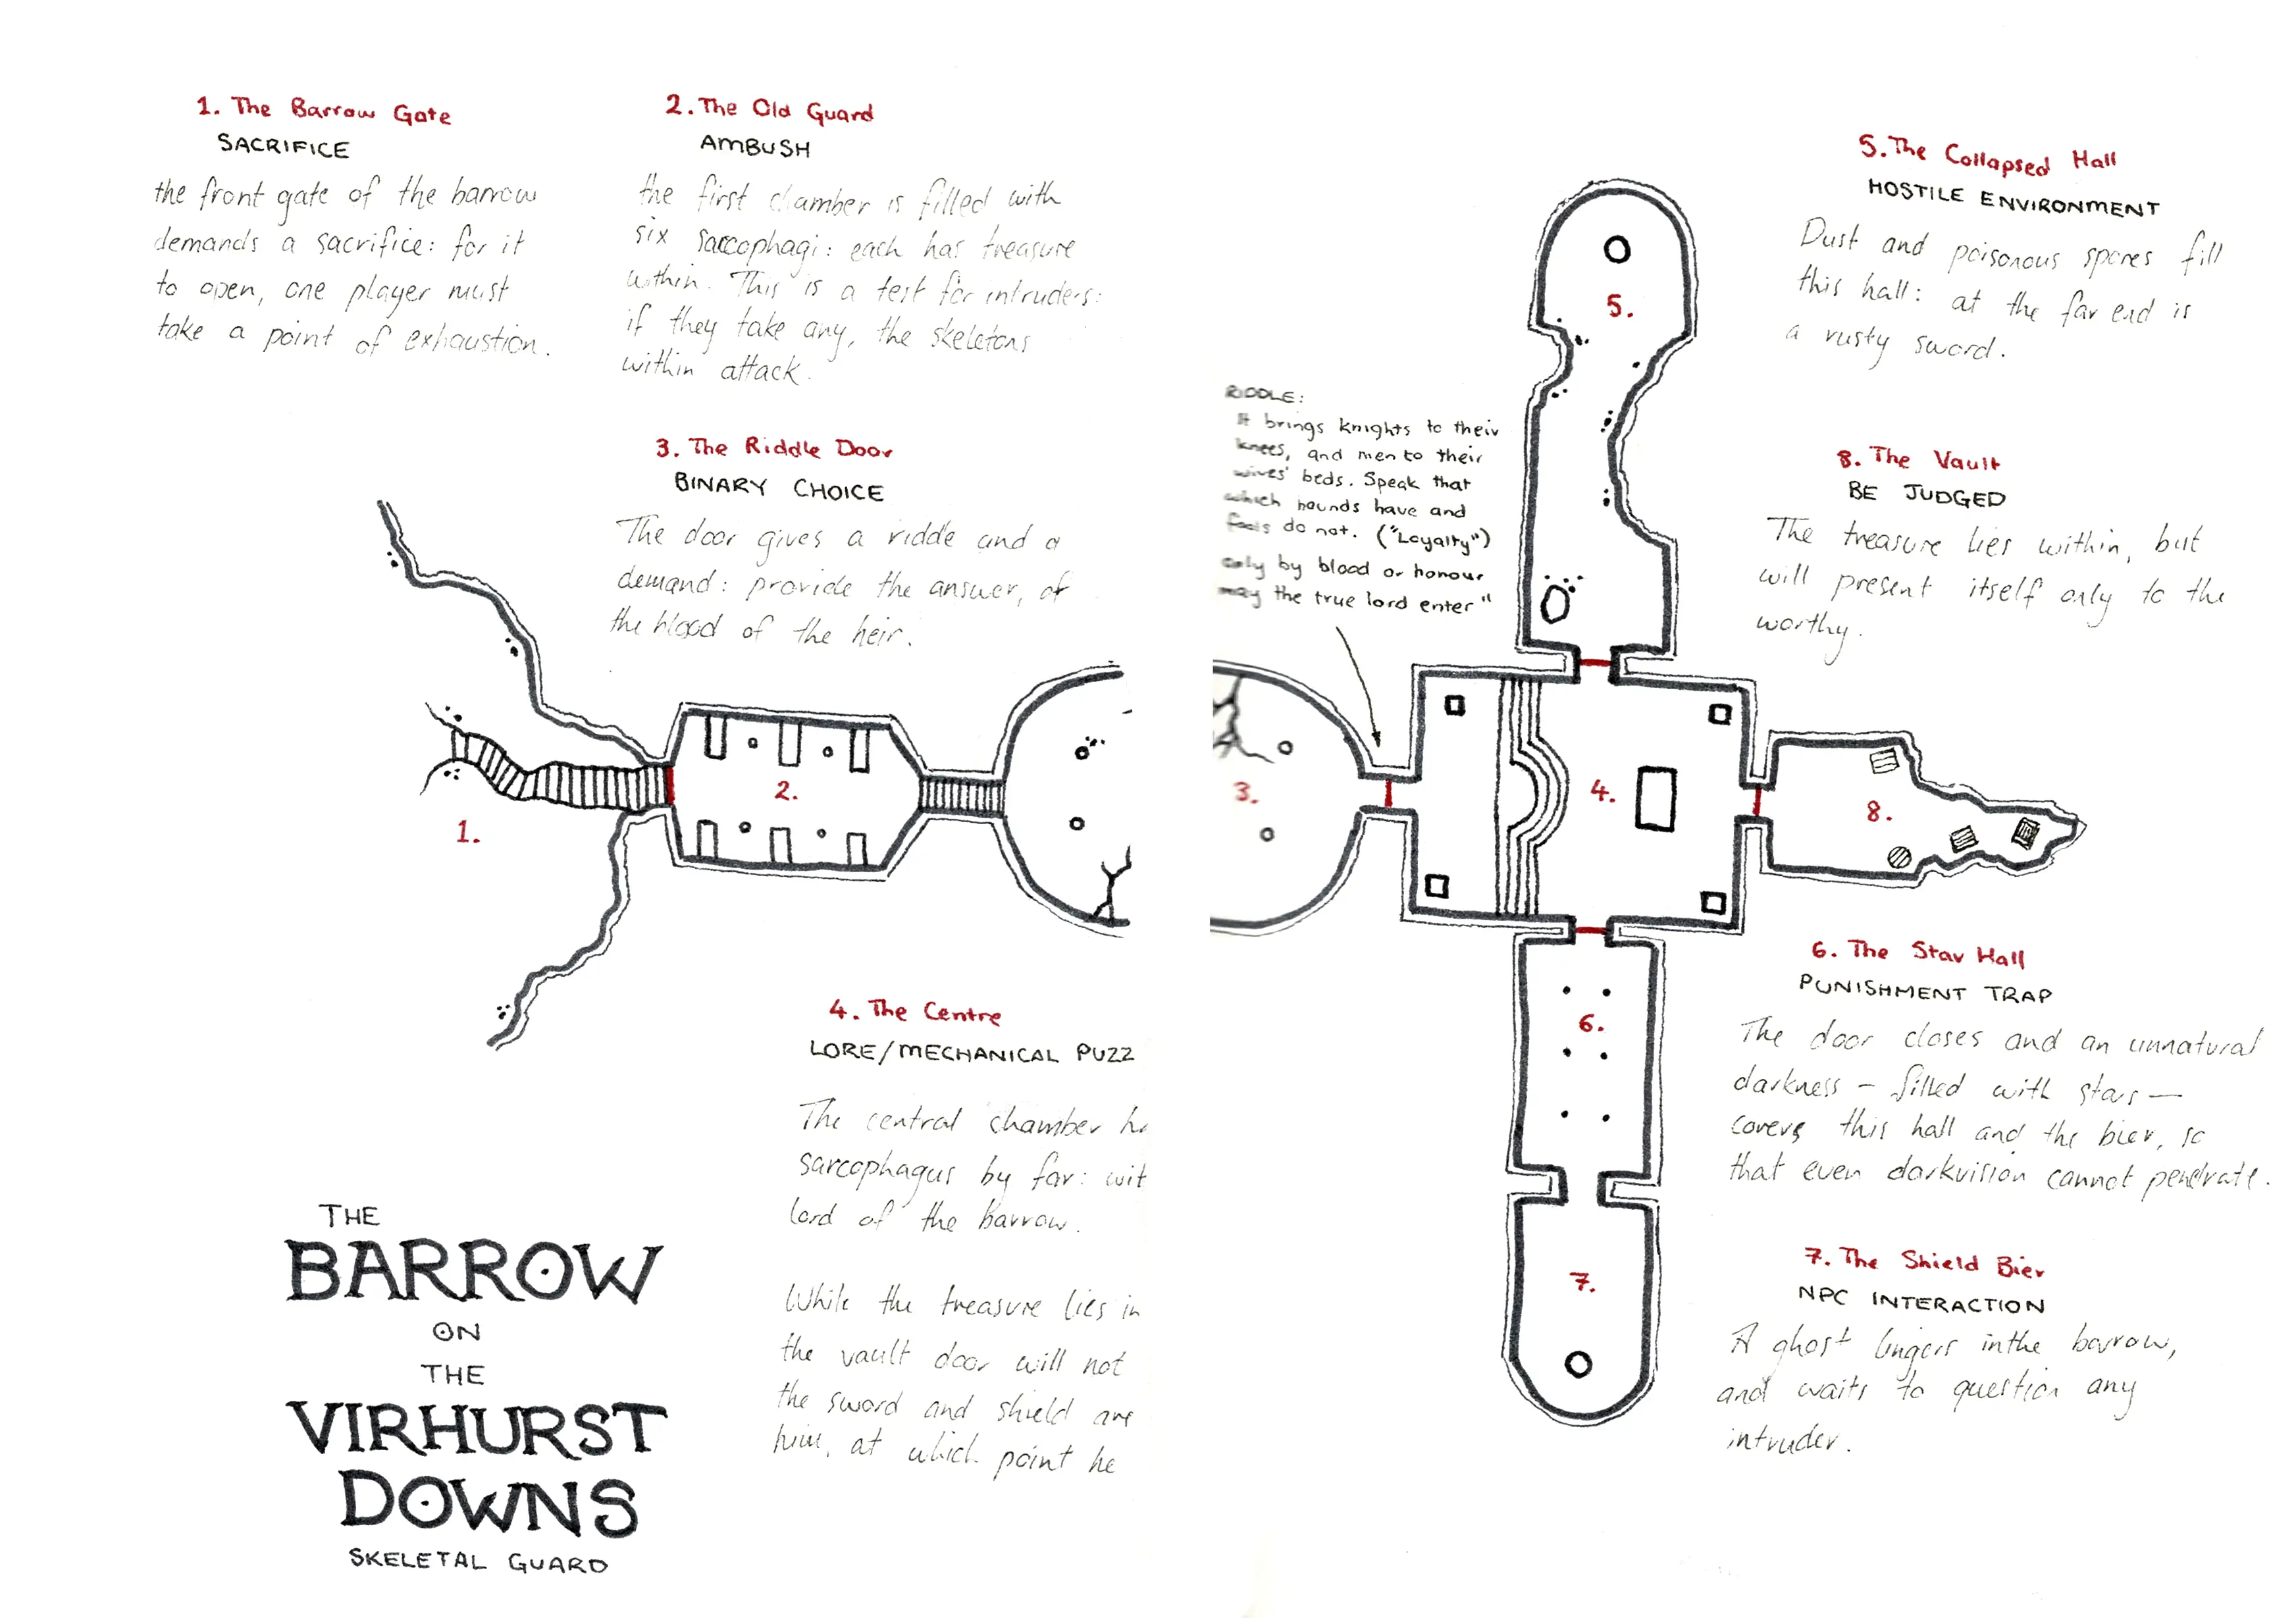 1. The Barrow Gate
SACRIFICE
the front gate of the barrow
demands a sacrifice: for it
to open, one player must
take a point of exhaustion.
2. The Old Guard
AMBUSH
the first chamber is filled with
six sarcophagi: each has treasure
within. This is a test for intruders:
if they take any, the skeletons
within attack.
3. The Riddle Door
BINARY CHOICE
The door gives a riddle and a
demand: provide the answer, or
the blood of the heir.
1.
2.
4. The Centre
LORE/MECHANICAL PUZZ
The central chamber ha
sarcophagus by far: wit
lord of the barrow.
While the treasure lies in
the vault door will not
the sword and shield are
him, at which point he
THE
BARROW
ON
THE
VIRHURST
DOWNS
SKELETAL GUARD
RIDDLE:
It brings knights to their
knees, and men to their
wives' beds. Speak that
which hounds have and
fools do not. ("Loyalty")
only by blood or honour
may the true lord enter"
3.
4.
5.
6.
7.
8.
5. The Collapsed Hall
HOSTILE ENVIRONMENT
Dust and poisonous spores fill
this hall: at the far end is
a rusty sword.
8. The Vault
BE JUDGED
The treasure lies within, but
will present itself only to the
worthy.
6. The Star Hall
PUNISHMENT TRAP
The door closes and an unnatural
darkness – filled with stars –
covers this hall and the bier, so
that even darkvision cannot penetrate.
7. The Shield Bier
NPC INTERACTION
A ghost lingers in the barrow,
and waits to question any
intruder.